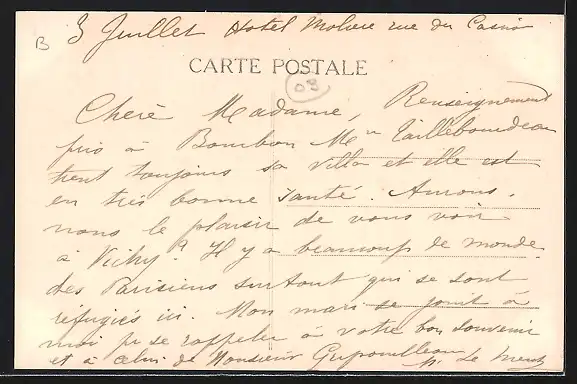 B 3 Juillet Hotel Molière rue du Casino
CARTE POSTALE
03
Chère Madame, Renseignement
pris à Bourbon Mme Taillebourdeau
tient toujours sa villa et elle est
en très bonne santé. Aurons-
nous le plaisir de vous voir
à Vichy? Il y a beaucoup de monde
des Parisiens surtout qui se sont
refugiés ici. Mon mari se joint à
moi pr se rappeler à votre bon souvenir
et à celui de Monsieur